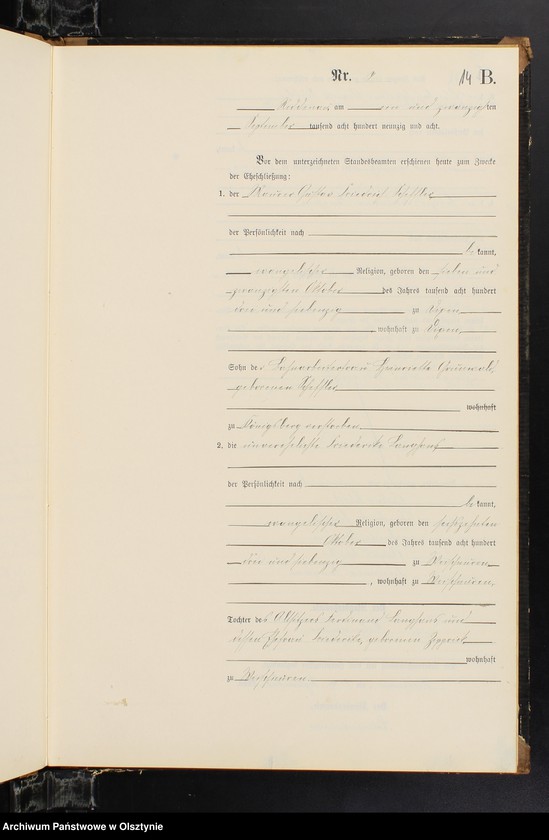 Nr. 14 B.
am ein und zwanzigsten
September tausend acht hundert neunzig und acht.
Vor dem unterzeichneten Standesbeamten erschienen heute zum Zwecke
der Eheschließung:
1. der Maurer Gustav Friedrich Scheffler
der Persönlichkeit nach
be kannt,
evangelischer Religion, geboren den sieben und
zwanzigsten Oktober des Jahres tausend acht hundert
drei und siebenzig zu
wohnhaft zu
Sohn der Henriette Grunwald,
geborenen Scheffler
wohnhaft
zu Königsberg verstorben
2. die unverehelichte Friederike Langhans
der Persönlichkeit nach
be kannt,
evangelischer Religion, geboren den sechszehnten
Oktober des Jahres tausend acht hundert
drei und siebenzig zu
, wohnhaft zu
Tochter des Altsitzers Ferdinand Langhans und
dessen Ehefrau Friederike, geborenen
wohnhaft
zu
Archiwum Państwowe w Olsztynie